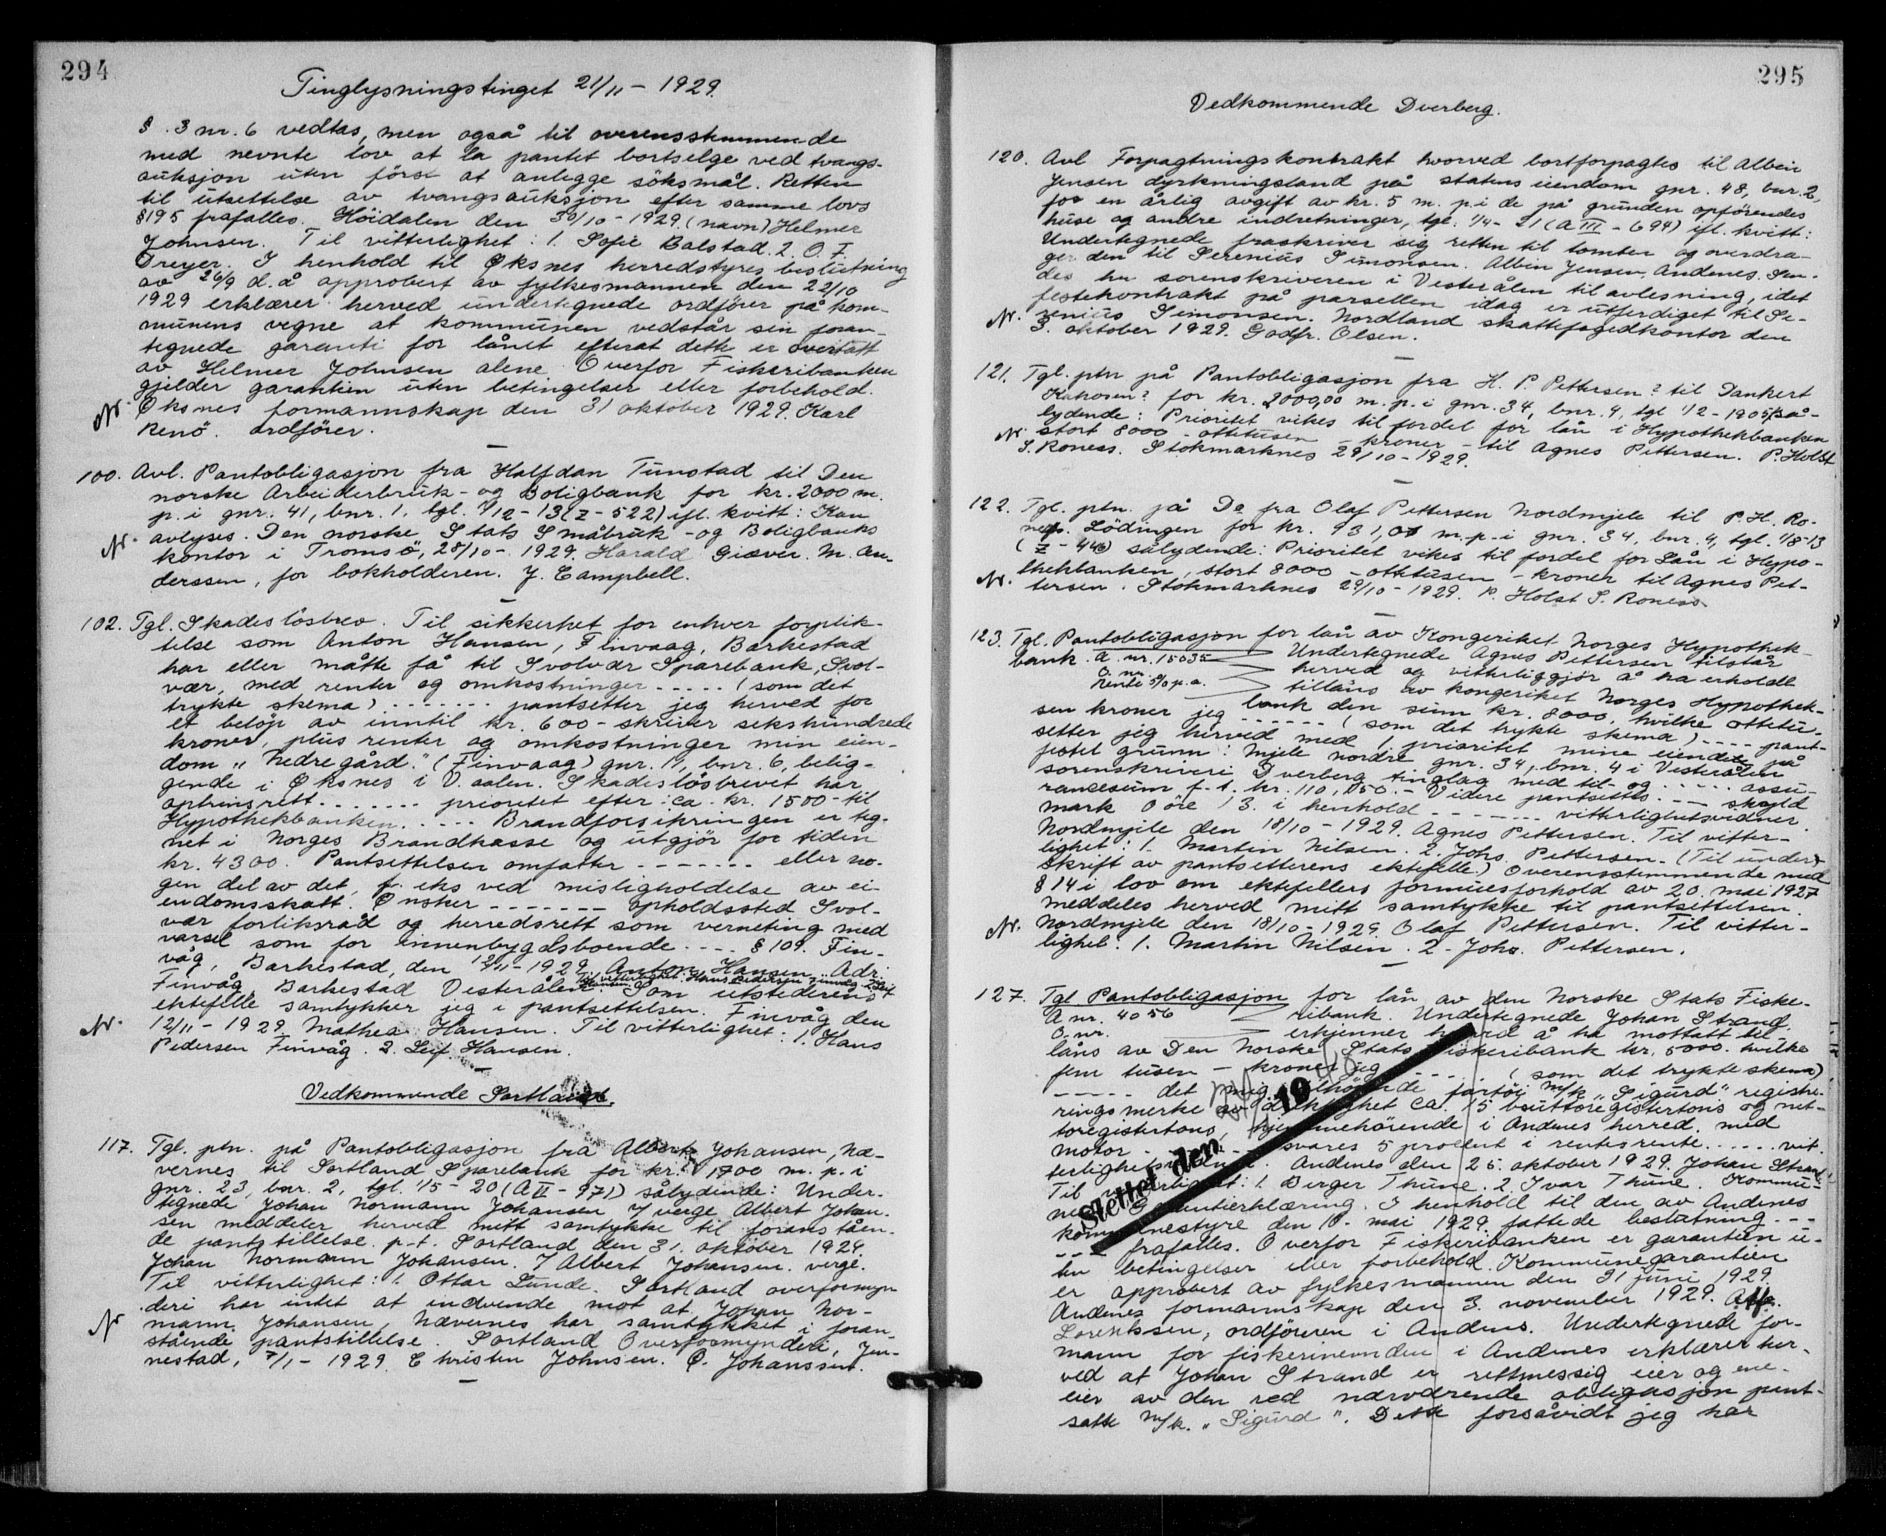 294
Tinglysningstinget 21/11 - 1929.
§ 3 nr. 6 vedtas, men også til overensstemmende
med nevnte lov at la pantet bortselge ved tvangs-
auksjon uten først at anlegge söksmål. Retten
til utsettelse av tvangsauksjon efter samme lovs
§ 195 frafalles. Höidalen den 30/10 - 1929. (navn) Helmer
Johnsen. Til vitterlighet: 1. Sofie Balstad. 2. O. F.
Dreyer. I henhold til Øksnes herredstyres beslutning
av 26/9 d.å approbert av fylkesmannen den 22/10
1929 erklærer herved undertegnede ordfører på kom-
munens vegne at kommunen vedstår sin foran-
tegnede garanti for lånet efterat dette er overtatt
av Helmer Johnsen alene. Overfor Fiskeribanken
gjelder garantien uten betingelser eller forbehold.
Nr. Øksnes formannskap den 31 oktober 1929. Karl
Renö. ordfører.
100. Avl. Pantobligasjon fra Halfdan Tunstad til Den
norske Arbeiderbruk- og Boligbank for kr. 2000 m.
p. i gnr. 41, bnr. 1, tgl. 1/12 - 13 (Z - 522) ifl. kvitt: Kan
Nr. avlyses. Den norske Stats Småbruk- og Boligbanks
kontor i Tromsö, 28/10 - 1929. Harald Giæver. M. An-
derssen, for bokholderen. J. Campbell.
102. Tgl. Skadeslösbrev. Til sikkerhet for enhver forplik-
telse som Anton Hansen, Finvaag, Barkestad
har eller måtte få til Svolvær Sparebank, Svol-
vær, med renter og omkostninger ..... (som det
trykte skema) ....... pantsetter jeg herved for
et belöp av inntil kr. 600 - skriver sekshundrede
kroner, plus renter og omkostninger min eien-
dom "Nedregård." (Finvaag) gnr. 11, bnr. 6, belig-
gende i Øksnes i V.aalen. Skadeslösbrevet har
optrinsrett ....... prioritet efter: ca. kr. 1500 - til
Hypothekbanken. ..... Brandforsikringen er teg-
net i Norges Brandkasse og utgjör for tiden
kr. 4300. Pantsettelsen omfatter ....... eller no-
gen del av det, f. eks ved misligholdelse av ei-
endomsskatt. Ønsker ....... opholdssted Svol-
vær forliksråd og herredsrett som verneting med
varsel som for innenbygdsboende .... § 109. Fin-
våg, Barkestad, den 12/11 - 1929. Anton Hansen. Adr:
Til vitterlighet: Hans Pedersen Finvåg 2. Leif Hansen.
Finvåg, Barkestad Vesterålen. Som utstederens
ektefelle samtykker jeg i pantsettelsen. Finvåg den
Nr. 12/11 - 1929. Mathea Hansen. Til vitterlighet: 1. Hans
Pedersen Finvåg. 2. Leif Hansen.
Vedkommende Sortland.
117. Tgl. ptn. på Pantobligasjon fra Albert Johansen, Næ-
vernes til Sortland Sparebank for kr. 1700 m. p. i
gnr. 23, bnr. 2, tgl. 1/5 - 20 (A II - 971) sålydende: Under-
tegnede Johan Normann Johansen v/ verge Albert Johan-
sen meddeler herved mitt samtykke til foranståen-
de pantstillelse. p.t. Sortland den 31. oktober 1929.
Johan Normann Johansen. / Albert Johansen. verge.
Til vitterlighet: 1. Ottar Lunde. Sortland overformyn
deri har intet at indvende mot at Johan Nor-
Nr mann Johansen, Nævernes har samtykket i foran-
stående pantstillelse. Sortland Overformynderi, Jen-
nestad, 7/11 - 1929. Christen Johnsen. O. Johanssen.
295
Vedkommende Dverberg.
120. Avl Forpagtningskontrakt hvorved bortforpagtes til Albin
Jensen dyrkningsland på statens eiendom gnr. 48, bnr. 2,
for en årlig avgift av kr. 5 m. p. i de på grunden opförendes
huse og andre indretninger, tgl. 1/4 - 21 (A III - 694) ifl. kvitt:
Undertegnede fraskriver sig retten til tomten og overdra-
ger den til Serenius Simonsen. Albin Jensen, Andenes. Sen-
des hr. sorenskriveren i Vesterålen til avlesning, idet
festekontrakt på parsellen idag er utferdiget til Se-
Nr. renius Simonsen. Nordland skattefogedkontor den
3. oktober 1929. Godfr. Olsen.
121. Tgl. ptn på Pantobligasjon fra H. P. Pettersen? til Dankert
Kakosen? for kr. 2000,00 m. p. i gnr. 34, bnr. 4, tgl 1/2 - 1905 så-
lydende: Prioritet vikes til fordel for lån i Hypothekbanken
Nr. stort 8000 - ottetusen - kroner - til Agnes Pettersen. P. Holst
S. Roness. Stokmarknes 29/10 - 1929.
122. Tgl. ptn. på Do fra Olaf Pettersen Nordmjele til P. H. Ro-
ness. Lödingen for kr. 931,01 m. p. i gnr. 34, bnr. 4, tgl. 1/8 - 13
(Z - 446) sålydende: Prioritet vikes til fordel for Lån i Hypo-
thekbanken, stort 8000 - ottetusen - kroner til Agnes Pet-
Nr. tersen. Stokmarknes 29/10 - 1929. P. Holst S. Roness.
123. Tgl. Pantobligasjon for lån av Kongeriket Norges Hypothek-
bank. A. nr. 15035 Undertegnede Agnes Pettersen tilstår
O. nr. herved og vitterliggjör å ha erholdt
Rente 5% p.a. tillåns av kongeriket Norges Hypothek-
bank den sum kr. 8000, hvilke ottetu-
sen kroner jeg ...... (som det trykte skema) .... pant-
setter jeg herved med 1 prioritet mine eiendom på
festet grunn: Mjele nordre gnr. 34, bnr. 4 i Vesterålen
sorenskriveri Dverberg tinglag med til- og ..... assu-
ransesum f. t. kr. 110,050.- Videre pantsettes .... skyld
mark 0 öre 13. i henhold ....... vitterlighetsvidner.
Nordmjele den 18/10 - 1929. Agnes Pettersen. Til vitter-
lighet: 1. Martin Nilsen. 2. Johs. Pettersen. (Til under-
skrift av pantsetterens ektefelle.) Overensstemmende med
§ 14 i lov om ektefellers formuesforhold av 20. mai 1927
meddeles herved mitt samtykke til pantsettelsen.
Nr. Nordmjele den 18/10 - 1929. Olaf Pettersen. Til vitter-
lighet: 1. Martin Nilsen. 2. Johs. Pettersen.
127. Tgl Pantobligasjon for lån av den Norske Stats Fiske-
A nr. 4056 ribank. Undertegnede Johan Strand
O. nr. erkjenner herved å ha mottatt til
låns av Den Norske Stats Fiskeribank kr. 5000. hvilke
fem tusen - kroner jeg .... (som det trykte skema)
..... det mig tilhörende fartöi m/k "Sigurd" registre-
ringsmerke av drektighet ca. 15 bruttoregistertons og net-
toregistertons, hjemmehörende i Andenes herred, med
motor ....... svares 5 procent i rentesrente .... vit-
terlighetsvidner. Andenes den 25. oktober 1929. Johan Strand
Til vitterlighet: 1. Birger Thune. 2. Ivar Thune. Kommu-
nens garantierklæring. I henhold til den av Andenes
kommunestyre den 10. mai 1929 fattede beslutning ...
... frafalles. Overfor Fiskeribanken er garantien u-
ten betingelser eller forbehold. Kommunegarantien
er approbert av fylkesmannen den 21 juni 1929.
Andenes formannskap den 3. november 1929. Alf.
Lorentssen, ordföreren i Andenes. Undertegnede for-
mann for fiskerinemnden i Andenes erklærer her-
ved at Johan Strand er rettmessig eier og ene-
eier av den ved nærværende obligasjon pant-
satte m/k. "Sigurd". Dette forsåvidt jeg har
Slettet den 19